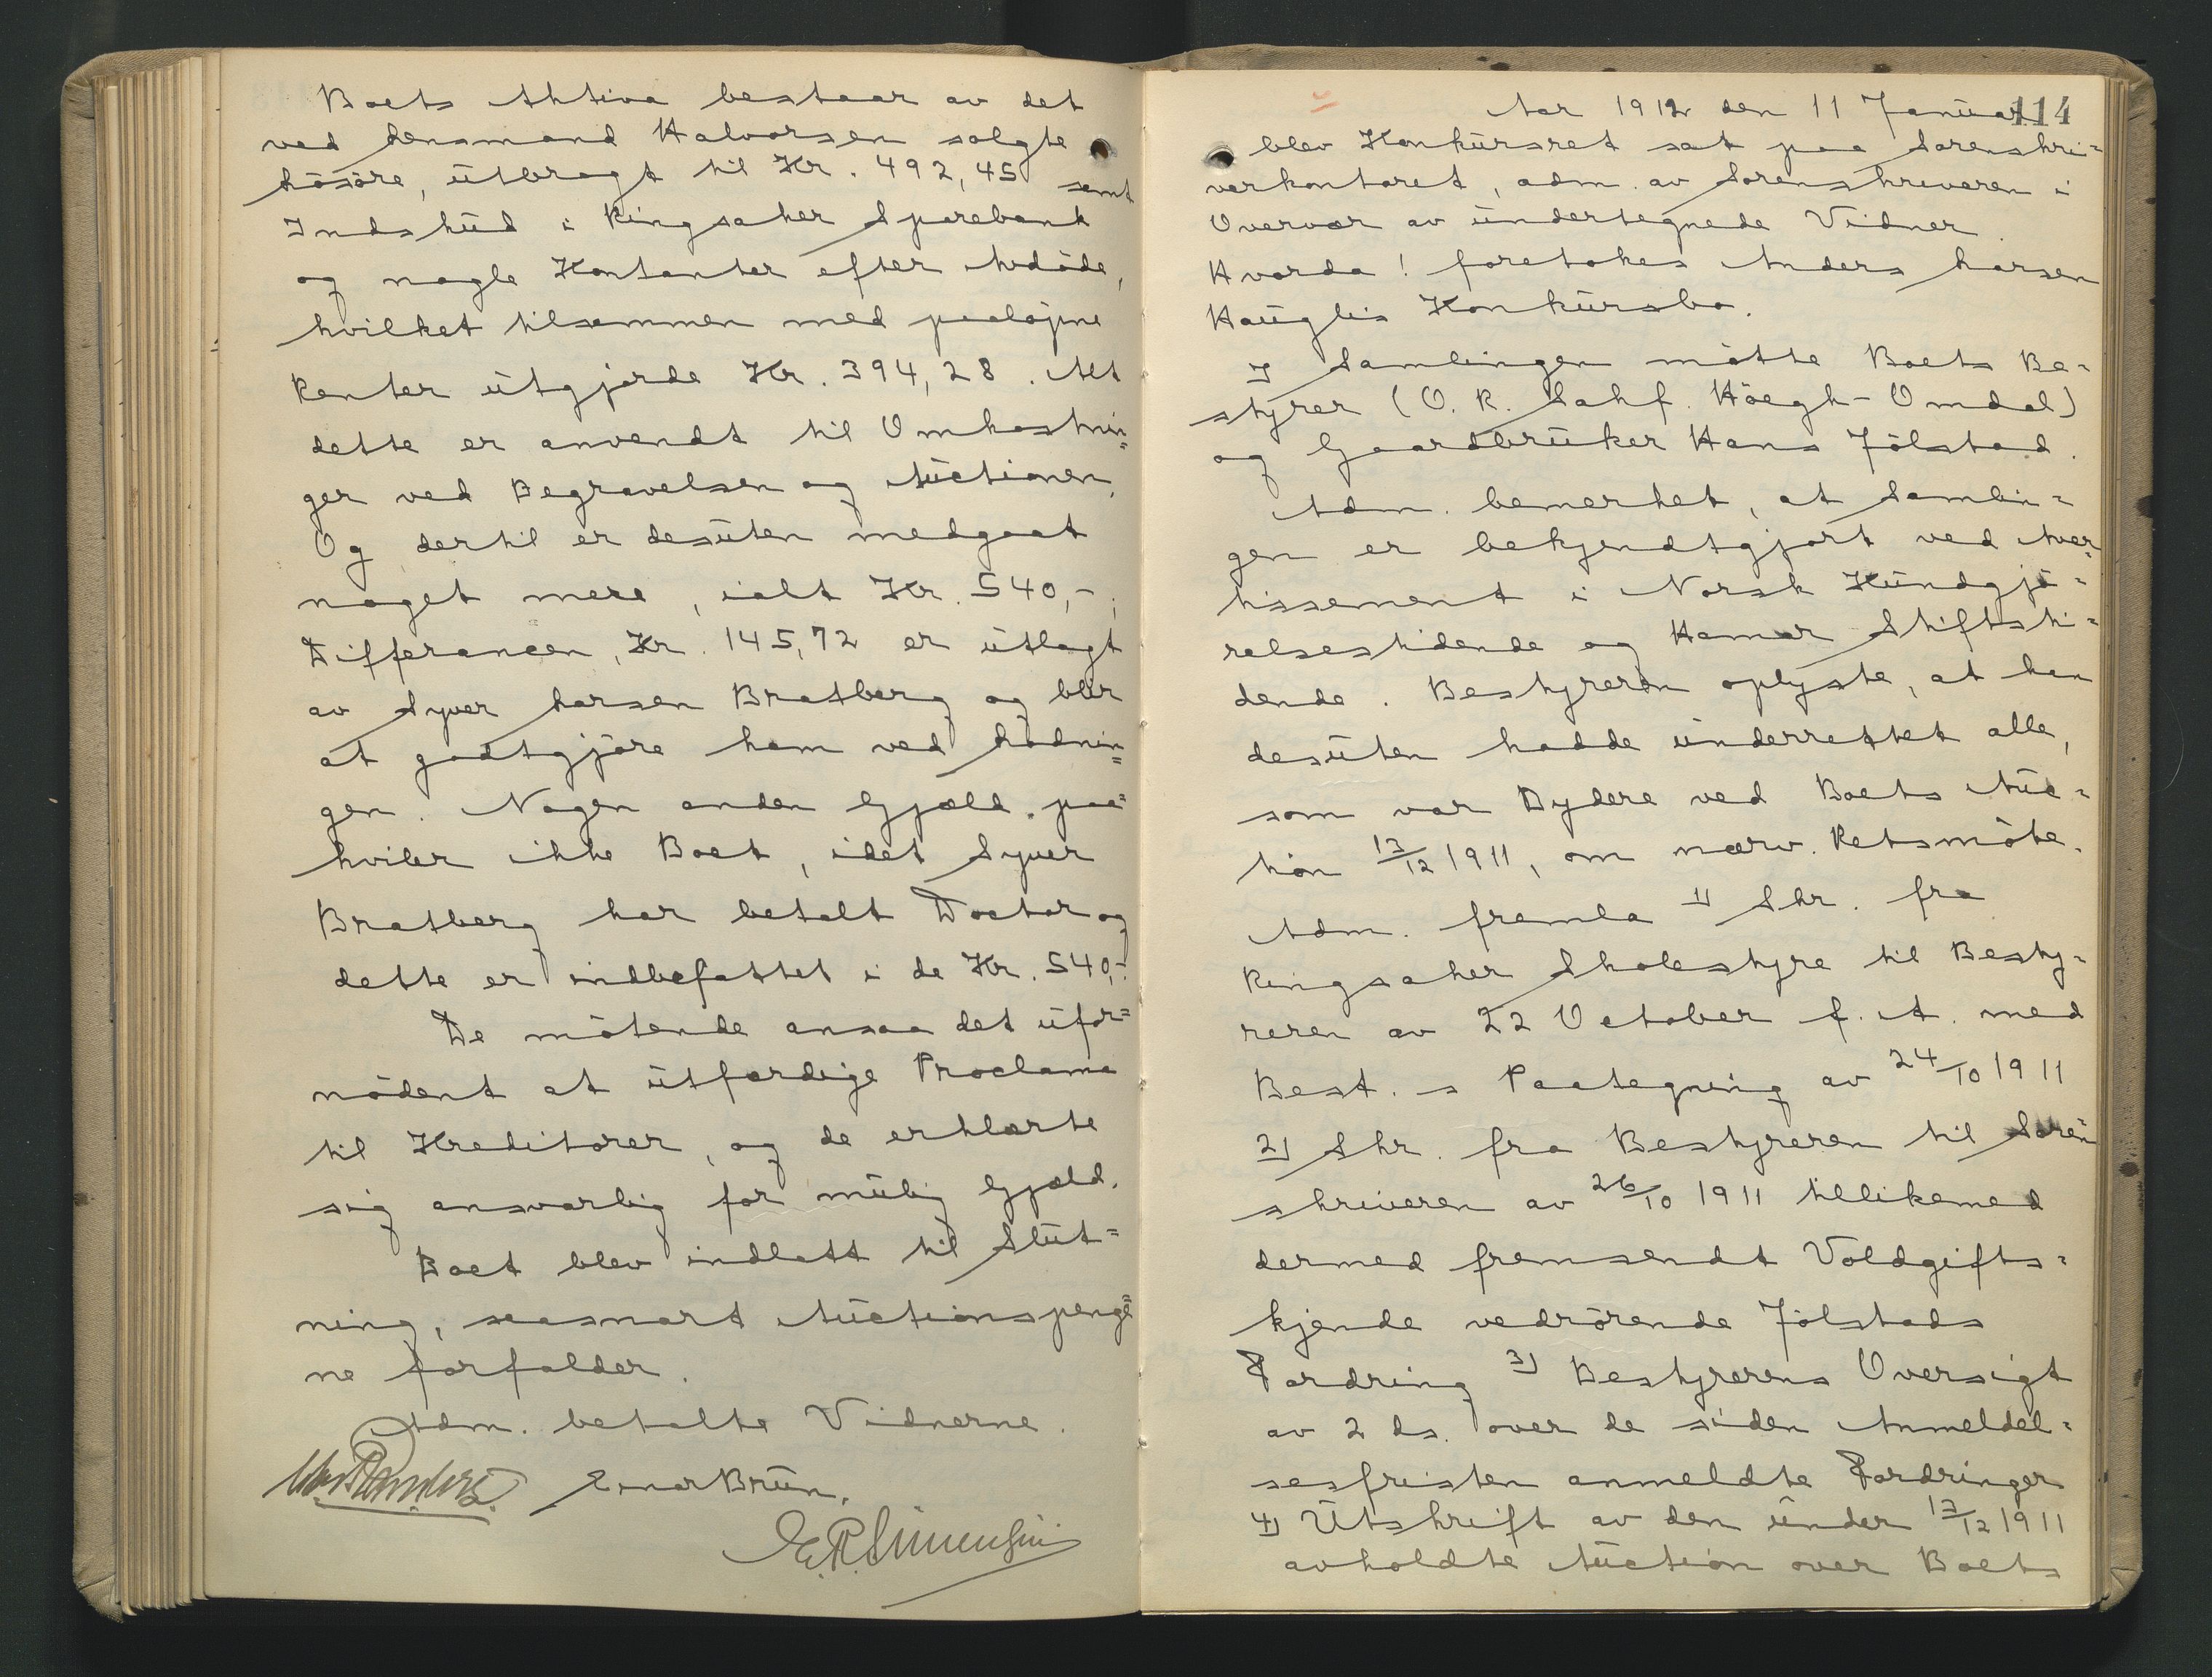 Boets Aktiva bestaar av det
ved Lensmand Halvorsen solgte
Lösöre, utbragt til Kr. 492,45 samt
Indskud i Ringsaker Sparebank
og nogle Kontanter efter Avdöde,
hvilket tilsammen med paalöpne
Renter utgjorde Kr. 394,28. Alt
dette er anvendt til Omkostnin=
ger ved Begravelsen og Auctionen.
Og dertil er desuten medgaat
noget mere, ialt Kr. 540,-;
Differancen, Kr. 145,72 er utlagt
av Syver Larsen Bratberg og blir
at godtgjöre ham ved Lodnin=
gen. Nogen anden Gjæld paa=
hviler ikke Boet, idet Syver
Bratberg har betalt Doctor og
dette er indbefattet i de Kr. 540,-.
De mötende ansaa det ufor=
nödent at utfærdige Proclama
til Kreditorer, og de erklærte
sig ansvarlig for mulig Gjæld.
Boet blev indlatt til Slut=
ning, saasnart Auctionspenge=
ne forfalder.
Adm. betalte Vidnerne.
Einar Bruun.
E. R. Simensen
114
Aar 1912 den 11 Januar
blev Konkursret sat paa Sorenskri=
verkontoret, adm. av Sorenskriveren i
Overvær av undertegnede Vidner.
Hvorda! foretokes Anders Larsen
Hauglis Konkursbo.
I Samlingen mötte Boets Be=
styrer (O. R. Sakf. Höegh-Omdal)
og Gaardbruker Hans Jölstad.
Adm. bemerket, at Samlin=
gen er bekjendtgjort ved Aver=
tissement i Norsk Kundgjö=
relsestidende og Hamar Stiftsti=
dende. Bestyreren oplyste, at han
desuten hadde underrettet alle,
som var Bydere ved Boets Auc=
tion 13/12 1911, om nærv. Retsmöte.
Adm. fremla 1) Skr. fra
Ringsaker Skolestyre til Besty=
reren av 22 October f. A. med
Best.s Paategning av 24/10 1911
2) Skr. fra Bestyreren til Soren
skriveren av 26/10 1911 tillikemed
dermed fremsendt Voldgifts=
kjende vedrörende Jölstads
Fordring 3) Bestyrerens Oversigt
av 2 ds. over de siden Anmeldel=
sesfristen anmeldte Fordringer
4) Utskrift av den under 13/12 1911
avholdte Auction over Boets